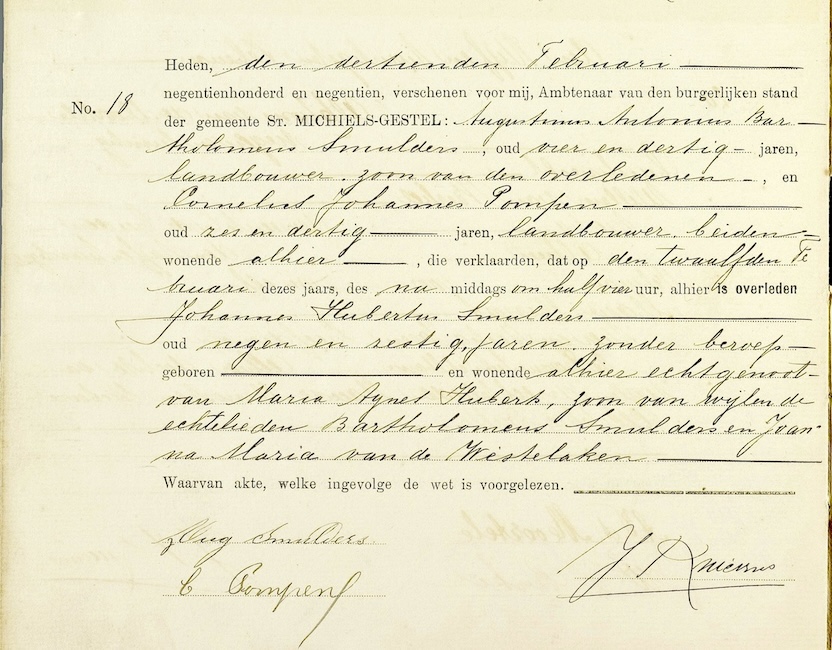 Heden, den dertienden Februari
negentienhonderd en negentien, verschenen voor mij, Ambtenaar van den burgerlijken stand
No. 18
der gemeente ST. MICHIELS-GESTEL: Augustinus Antonius Bar-
tholomeus Smulders, oud vier en dertig jaren,
landbouwer, zoon van den overledenen, en
Cornelus Johannes Pompen
oud zes en dertig jaren, landbouwer, beiden
wonende alhier, die verklaarden, dat op den twaalfden Fe
bruari dezes jaars, des na middags om half vier uur, alhier is overleden
Johannes Hubertus Smulders
oud negen en zestig jaren, zonder beroep
geboren en wonende alhier echtgenoot
van Maria Agnes Huberts, zoon van wijlen de
echtelieden Bartholomeus Smulders en Joan-
na Maria van de Westelaken
Waarvan akte, welke ingevolge de wet is voorgelezen.
Aug Smulders
C Pompen